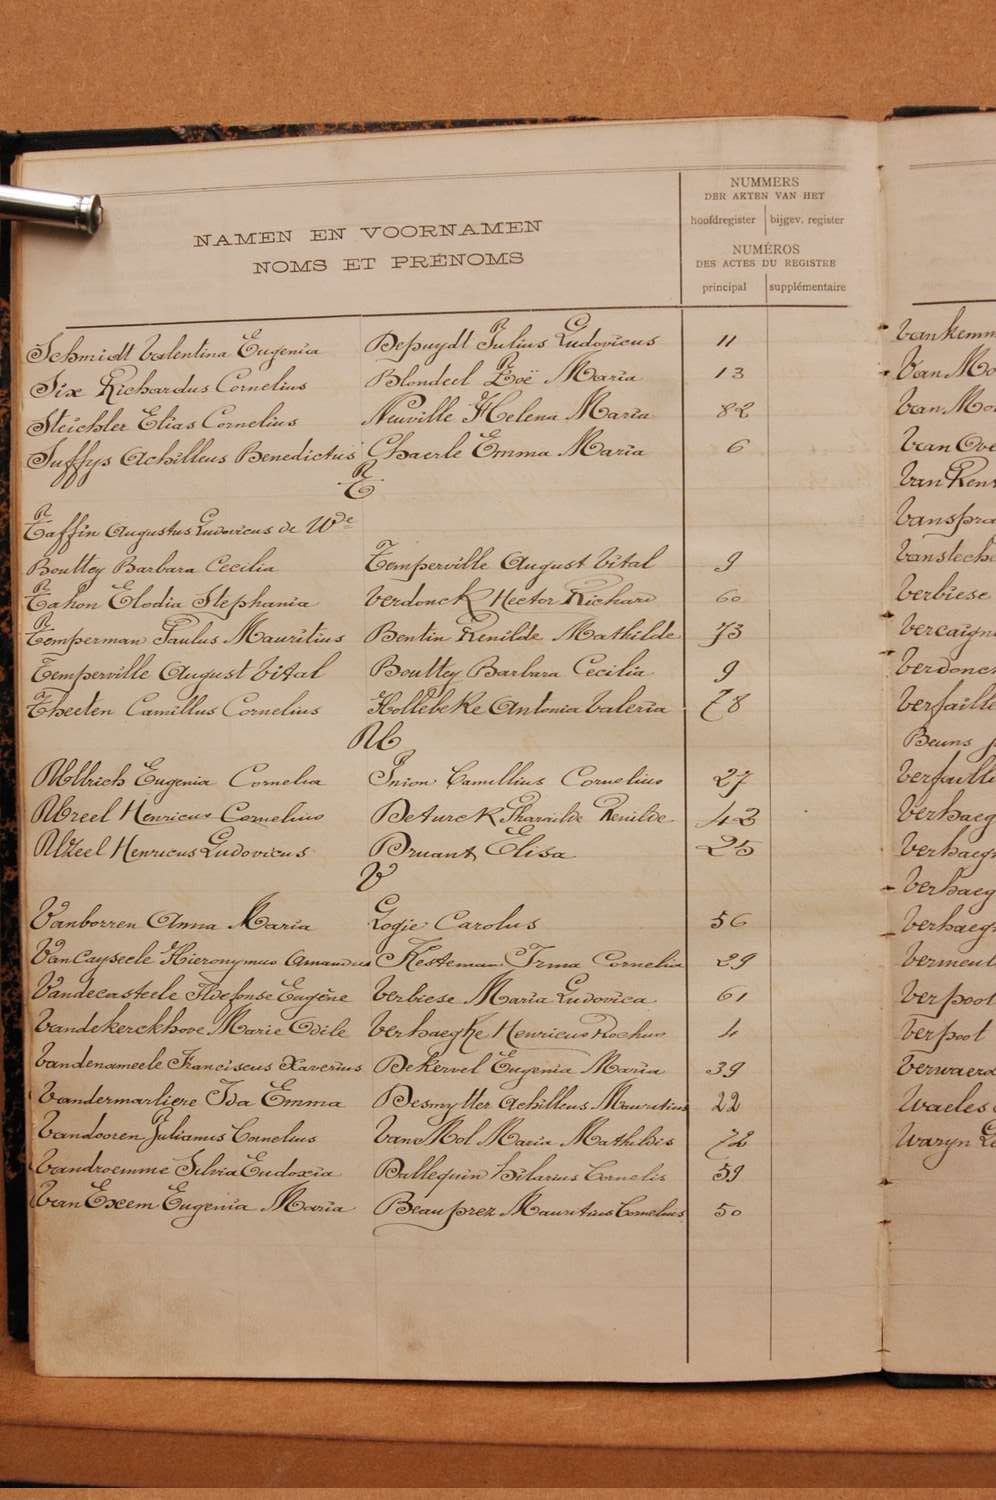 NUMMERS
DER AKTEN VAN HET
hoofdregister bijgev. register
NAMEN EN VOORNAMEN
NOMS ET PRÉNOMS
NUMÉROS
DES ACTES DU REGISTRE
principal supplémentaire
Schmidt Valentina Eugenia Depuydt Julius Ludovicus 11
Six Richardus Cornelius Blondeel Zoë Maria 13
Steichler Elias Cornelius Neuville Helena Maria 82
Suffys Achilleus Benedictus Ghaerle Emma Maria 6
T
Taffin Augustus Ludovicus de Wde
Bouttey Barbara Cecilia Temperville August Vital 9
Tahon Elodia Stephania Verdonck Hector Richard 60
Temperman Paulus Mauritius Bentin Renilde Mathilde 73
Temperville August Vital Bouttey Barbara Cecilia 9
Theeten Camillus Cornelius Hollebeke Antonia Valeria 78
U
Ullrich Eugenia Cornelia Inion Camillius Cornelius 27
Ureel Henricus Cornelius Deturck Pharaïlde Renilde 42
Ureel Henricus Ludovicus Bruant Elisa 25
V
Vanborren Anna Maria Logie Carolus 56
Van Cayseele Hieronymus Amandus Kesteman Irma Cornelia 29
Vandecasteele Ildefonse Eugène Verbiese Maria Ludovica 61
Vandekerckhove Marie Odile Verhaeghe Henricus Rochus 4
Vandenameele Franciscus Xaverius Dekervel Eugenia Maria 39
Vandermarliere Ida Emma Desmytter Achilleus Mauritius 22
Vandooren Julianus Cornelius Van Mol Maria Mathildis 72
Vandroemme Silvia Eudoxia Dallequin Hilarius Cornelis 59
Van Exem Eugenia Maria Beauprez Mauritius Cornelius 50
Van Mo
Van Mo
Van Ove
Verbiese
Vercaign
Verdonck
Verfaille
Beuns
Verfaille
Verhaeg
Verhaeg
Verhaeg
Verhaeg
Vermeul
Verpoot
Verpoot
Verwaerd
Waeles
Waryn